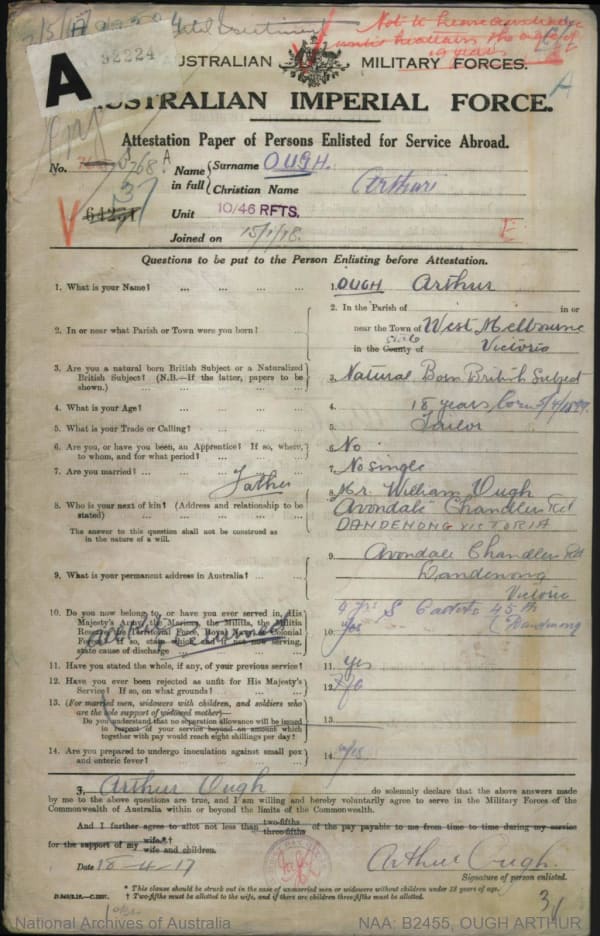 Not to
19 years
A
92224
AUSTRALIAN MILITARY FORCES.
AUSTRALIAN IMPERIAL FORCE.
Attestation Paper of Persons Enlisted for Service Abroad.
No. 3768 A
Name in full { Surname OUGH.
Christian Name Arthur
64251
Unit 10/46 RFTS.
Joined on 15/1/18.
Questions to be put to the Person Enlisting before Attestation.
1. What is your Name? ... ... ... ... 1. OUGH Arthur
2. In or near what Parish or Town were you born? ... 2. In the Parish of in or
near the Town of West Melbourne
in the County of Victoria
3. Are you a natural born British Subject or a Naturalized
British Subject? (N.B.—If the latter, papers to be
shown.) ... ... ... ... 3. Natural Born British Subject
4. What is your Age? ... ... ... 4. 18 years, born 5/4/1899
5. What is your Trade or Calling? ... ... 5. Tailor
6. Are you, or have you been, an Apprentice? If so, where,
to whom, and for what period? ... ... 6. No
7. Are you married? ... ... ... 7. No single
Father
8. Who is your next of kin? (Address and relationship to be
stated) ... ... ... ...
The answer to this question shall not be construed as
in the nature of a will.
8. Mr. William Ough
Avondale Chandler Rd
DANDENONG VICTORIA
9. What is your permanent address in Australia? ... ... 9. Avondale Chandler Rd
Dandenong
Victoria
10. Do you now belong to, or have you ever served in, His
Majesty's Army, the Marines, the Militia, the Militia
Reserve, the Territorial Force, Royal Navy, or Colonial
Forces? If so, state which, and if not now serving,
state cause of discharge ...
10. S Cadets 45th
yes (Dandenong
11. Have you stated the whole, if any, of your previous service? 11. yes
12. Have you ever been rejected as unfit for His Majesty's
Service? If so, on what grounds? ... ... 12. No
13. (For married men, widowers with children, and soldiers who
are the sole support of widowed mother)—
Do you understand that no separation allowance will be issued
in respect of your service beyond an amount which
together with pay would reach eight shillings per day? 13.
14. Are you prepared to undergo inoculation against small pox
and enteric fever? ... ... ... 14.
I, Arthur Ough do solemnly declare that the above answers made
by me to the above questions are true, and I am willing and hereby voluntarily agree to serve in the Military Forces of the
Commonwealth of Australia within or beyond the limits of the Commonwealth.
And I further agree to allot not less than two-fifths three-fifths of the pay payable to me from time to time during my service
for the support of my wife*† wife and children.
Date 18-4-17
Arthur Ough.
Signature of person enlisted.
* This clause should be struck out in the case of unmarried men or widowers without children under 18 years of age.
† Two-fifths must be allotted to the wife, and if there are children three-fifths must be allotted.
National Archives of Australia NAA: B2455, OUGH ARTHUR